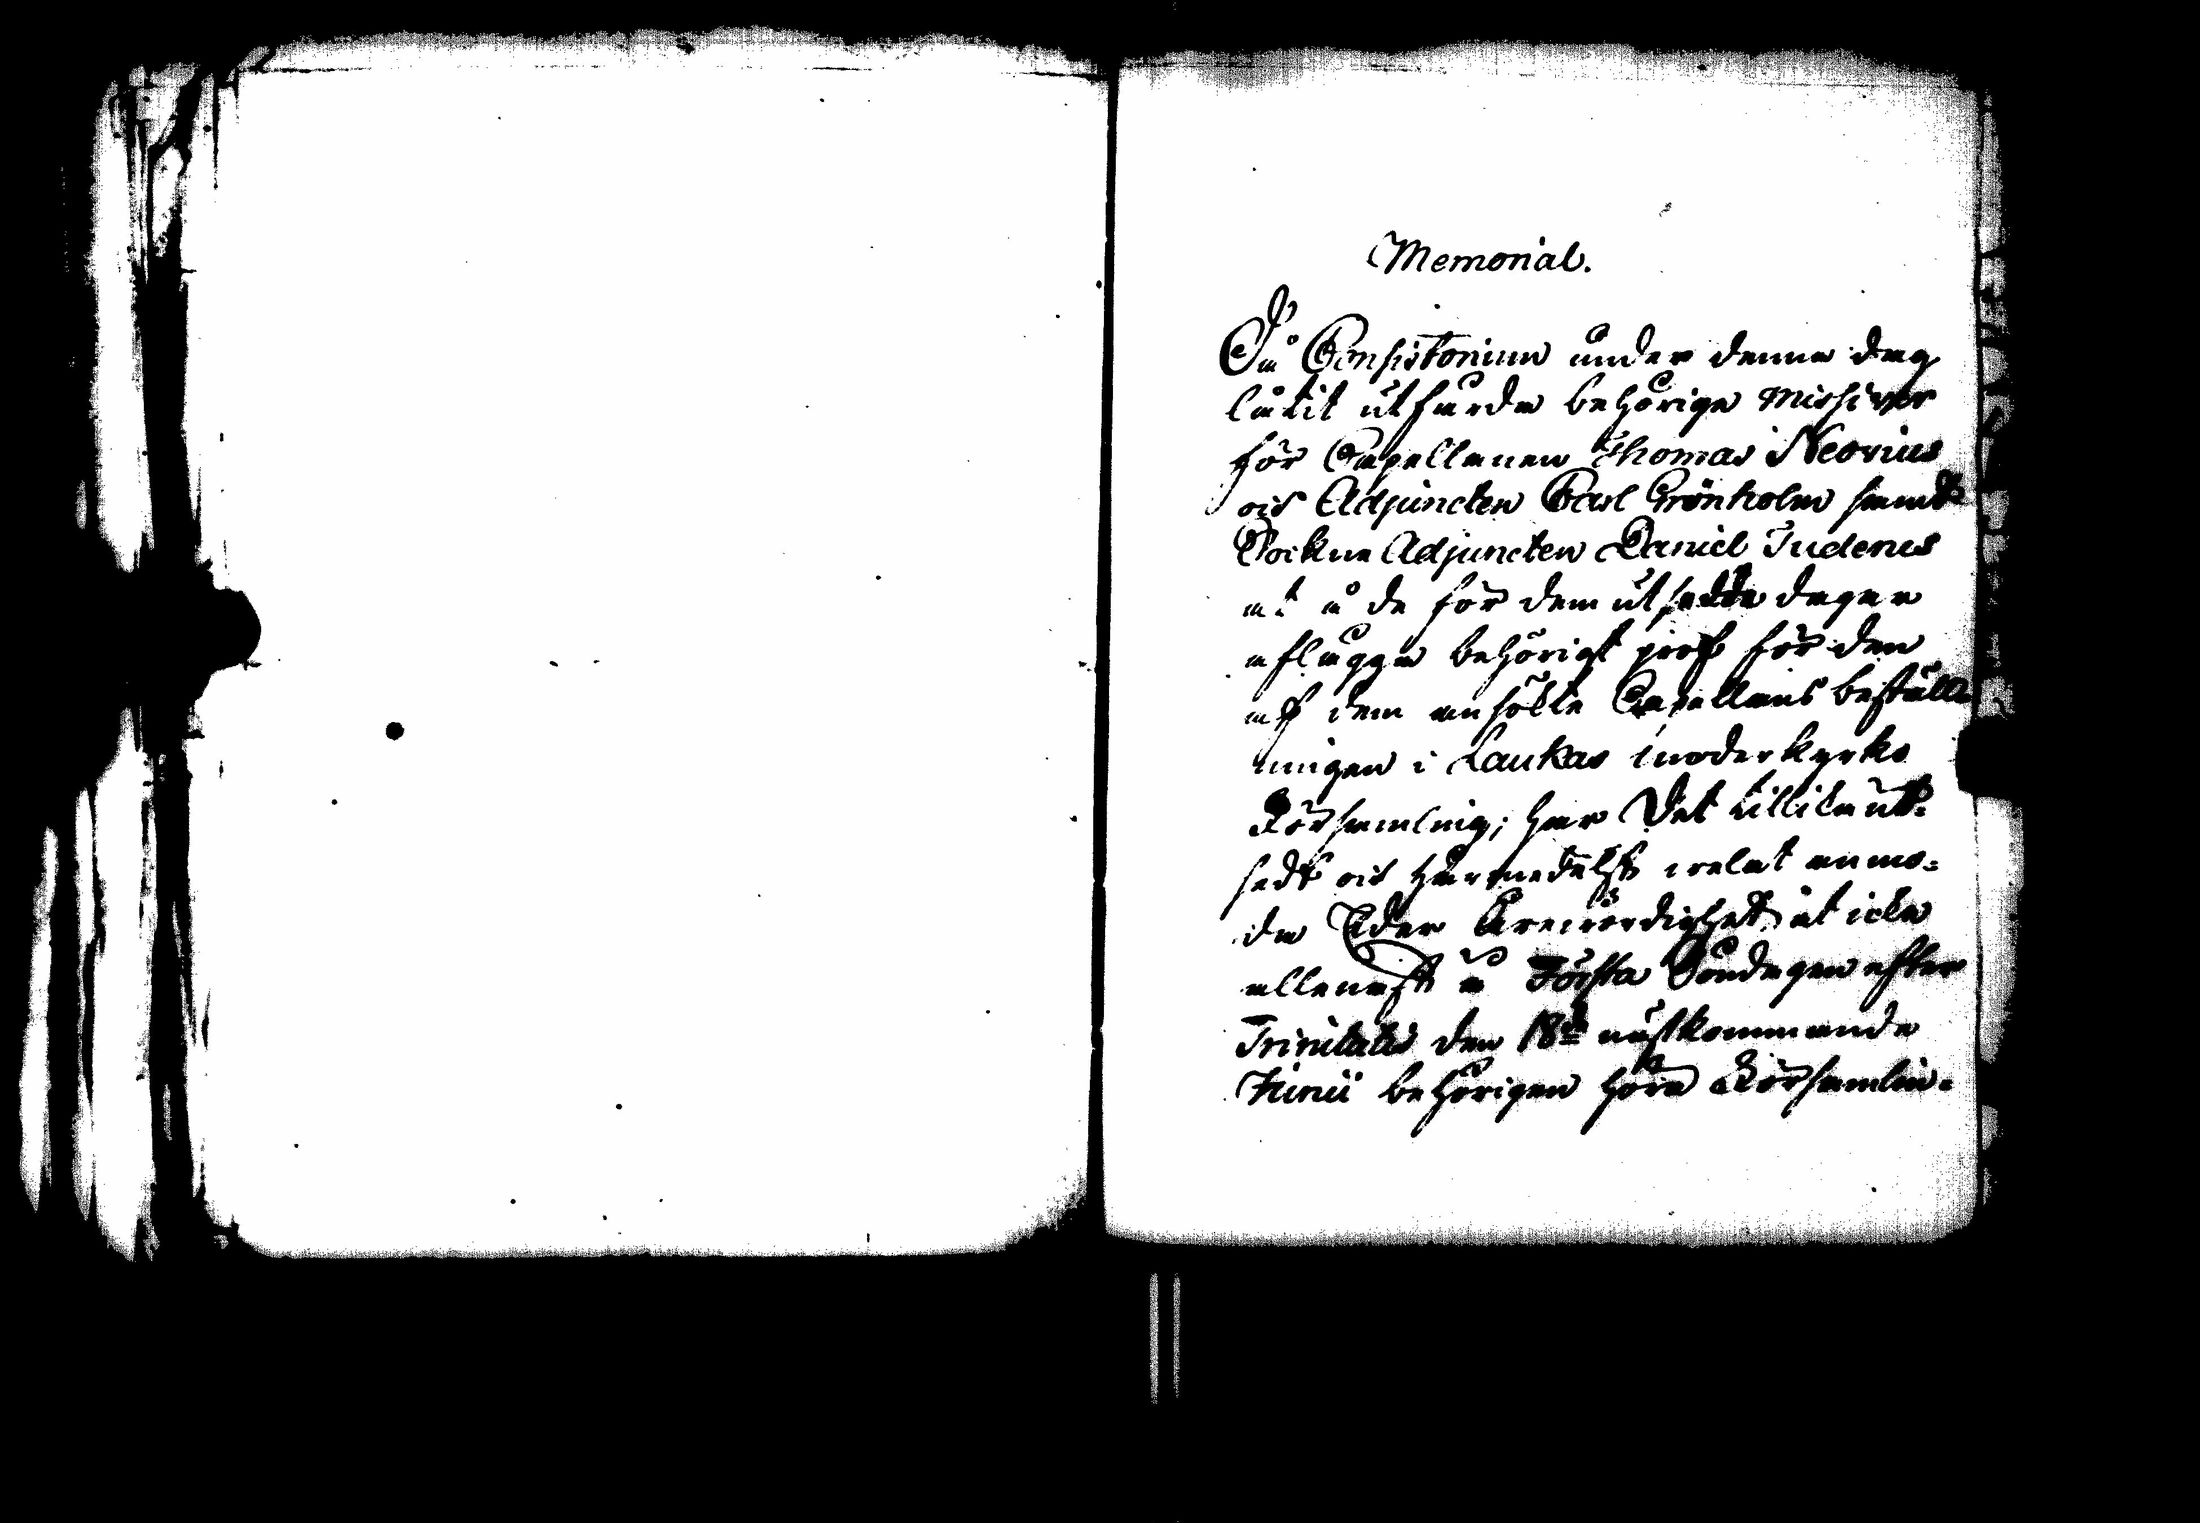 Memorial.
Då Consistorium under denna dag
låtit utfärda behörige Missiver
för Capellanen Thomas Neovius
och Adjuncten Carl Grönholm samt
Sockne Adjuncten Daniel Judenus
at å de för dem utsedde dagar
aflägga behörigt prof för den
af dem ansökte Capellans beställ
ningen i Laukas moderkyrko
Församling; har Det tillika ut-
sedt och härmedelst velat anmo-
da Eder Ärevördighet at icke
allenast å Första Söndagen efter
Trinitatis den 18de nästkommande
Junii behörigen höra Församlin-